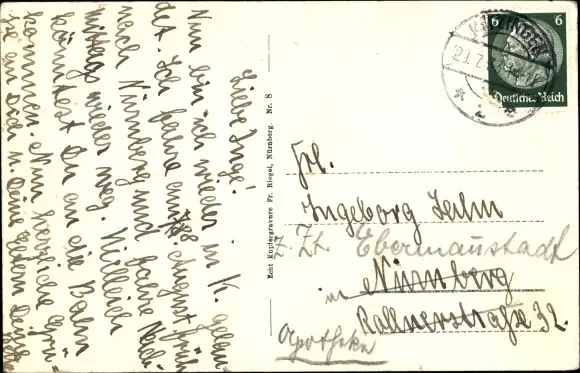 Liebe Inge!
Nun bin ich wieder in K. gelan-
det. Ich fahre am 8. August früh
nach Nürnberg und fahre Nach-
mittags wieder weg. Vielleich
könntest Du an die Bahn
kommen. Nun herzliche Grü-
ße an Dich u. Deine Eltern Deine
Echt Kupfergravure Fr. Riegel, Nürnberg. Nr. 8
6 6
Deutsches Reich
Frl.
Ingeborg
z. Zt. Ebermannstadt
in Nürnberg
Rollnerstraße 32.
Apotheke